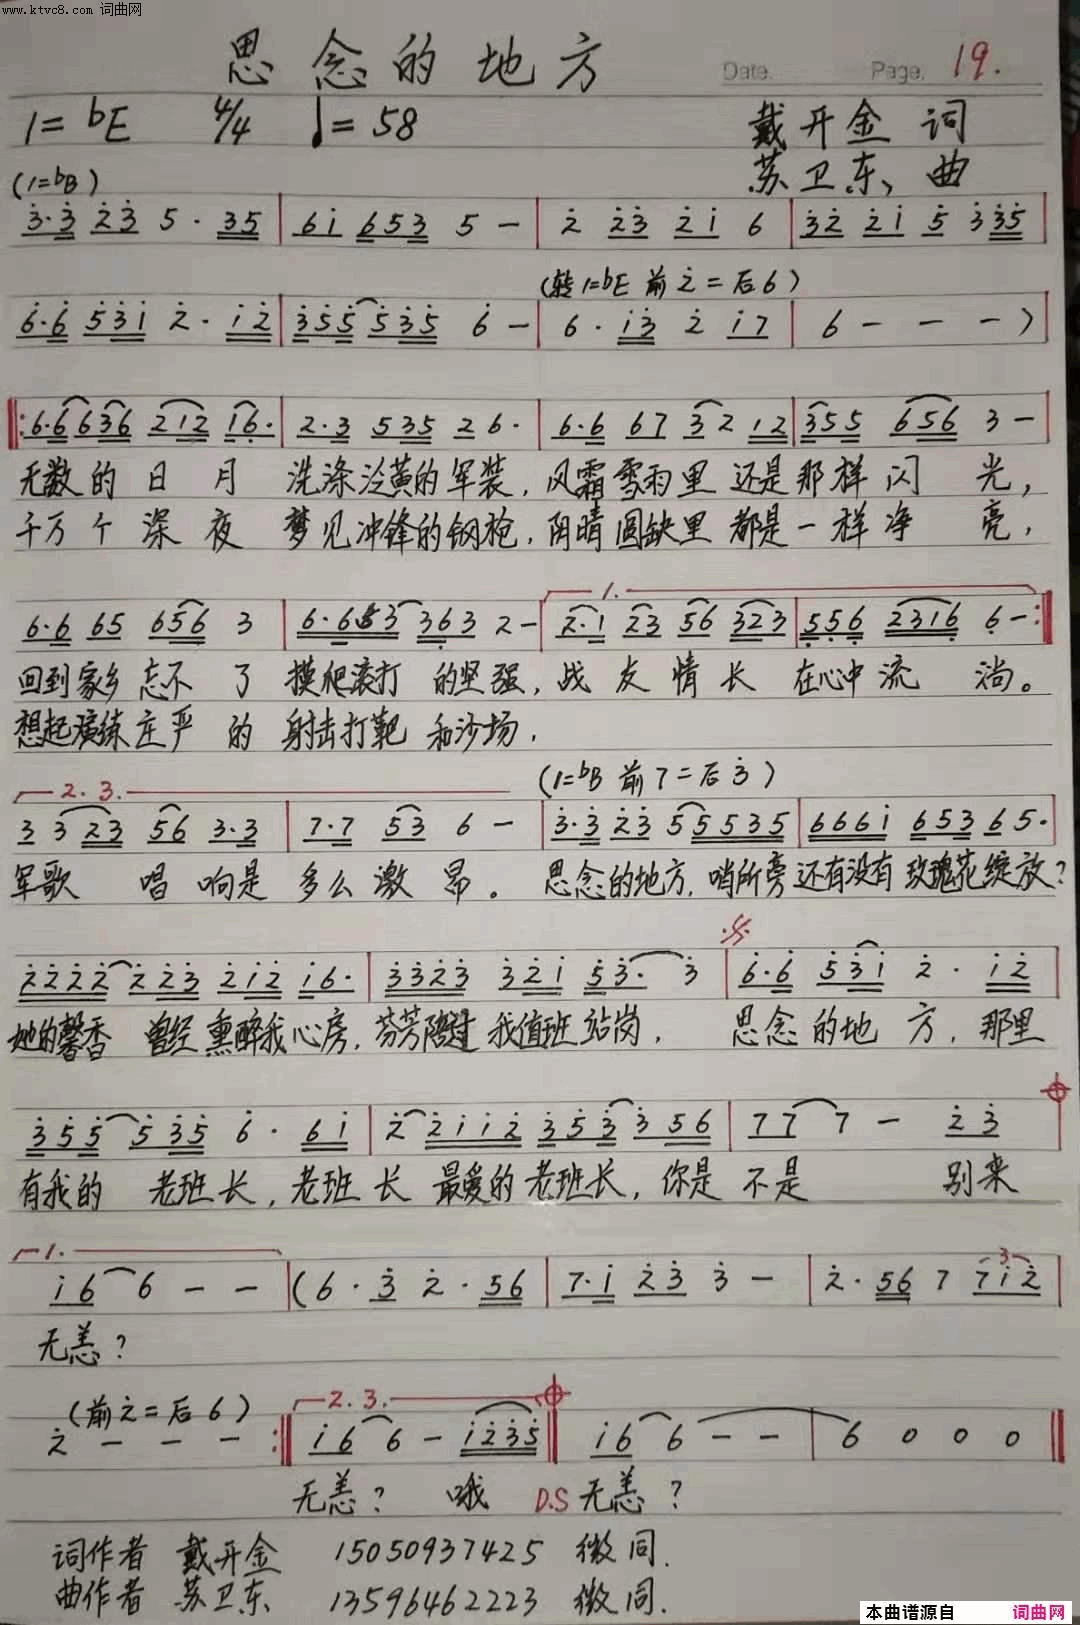 www.ktvc8.com 词曲网
思念的地方
Date. Page. 19.
1=bE 4/4 ♩=58 戴开金 词
苏卫东、曲
(1=bB)
3·3 23 5·35 | 6i 653 5 - | 2 23 2i 6 | 32 2i 5 3 335
(转1=bE 前2=后6)
6·6 53i 2·i2 | 355 535 6 - | 6·i3 2 i7 | 6 - - - )
‖:6·6636 212 16· | 2·3 535 2 6· | 6·6 67 32 12 | 355 656 3 -
无数的日月 洗涤泛黄的军装,风霜雪雨里 还是那样闪光,
千万个深夜 梦见冲锋的钢枪,阴晴圆缺里 都是一样净亮,
1.
6·6 65 656 3 | 6·653 363 2 - | 2·1 23 56 323 | 556 2316 6 - :‖
回到家乡忘不了 摸爬滚打的坚强,战友情长 在心中流淌。
想起演练庄严的 射击打靶和沙场,
2. 3. (1=bB 前7=后3)
3 3 23 56 3·3 | 7·7 53 6 - | 3·3 23 5 5535 | 666i 653 6 5·
军歌 唱响是多么激昂。思念的地方,哨所旁还有没有玫瑰花绽放?
𝄋
2222 223 2i2 i6· | 3323 32i 53· 3 | 6·6 53i 2· i2
她的馨香 曾经熏醉我心房,芬芳陪过 我值班站岗, 思念的地方,那里
355 535 6· 6i | 2 2ii2 353 356 | 77 7 - 23
有我的 老班长,老班长 最爱的老班长,你是不是 别来
1.
i6 6 - - | (6·3 2·56 | 7·i 23 3 - | 2·56 7 7i2 3
无恙?
(前2=后6) 2. 3.
2 - - - :‖ i6 6 - i235 ‖ i6 6 - - | 6 0 0 0 ‖
无恙? 哦 D.S 无恙?
词作者 戴开金 15050937425 微同.
曲作者 苏卫东 13596462223 微同.
本曲谱源自 词曲网